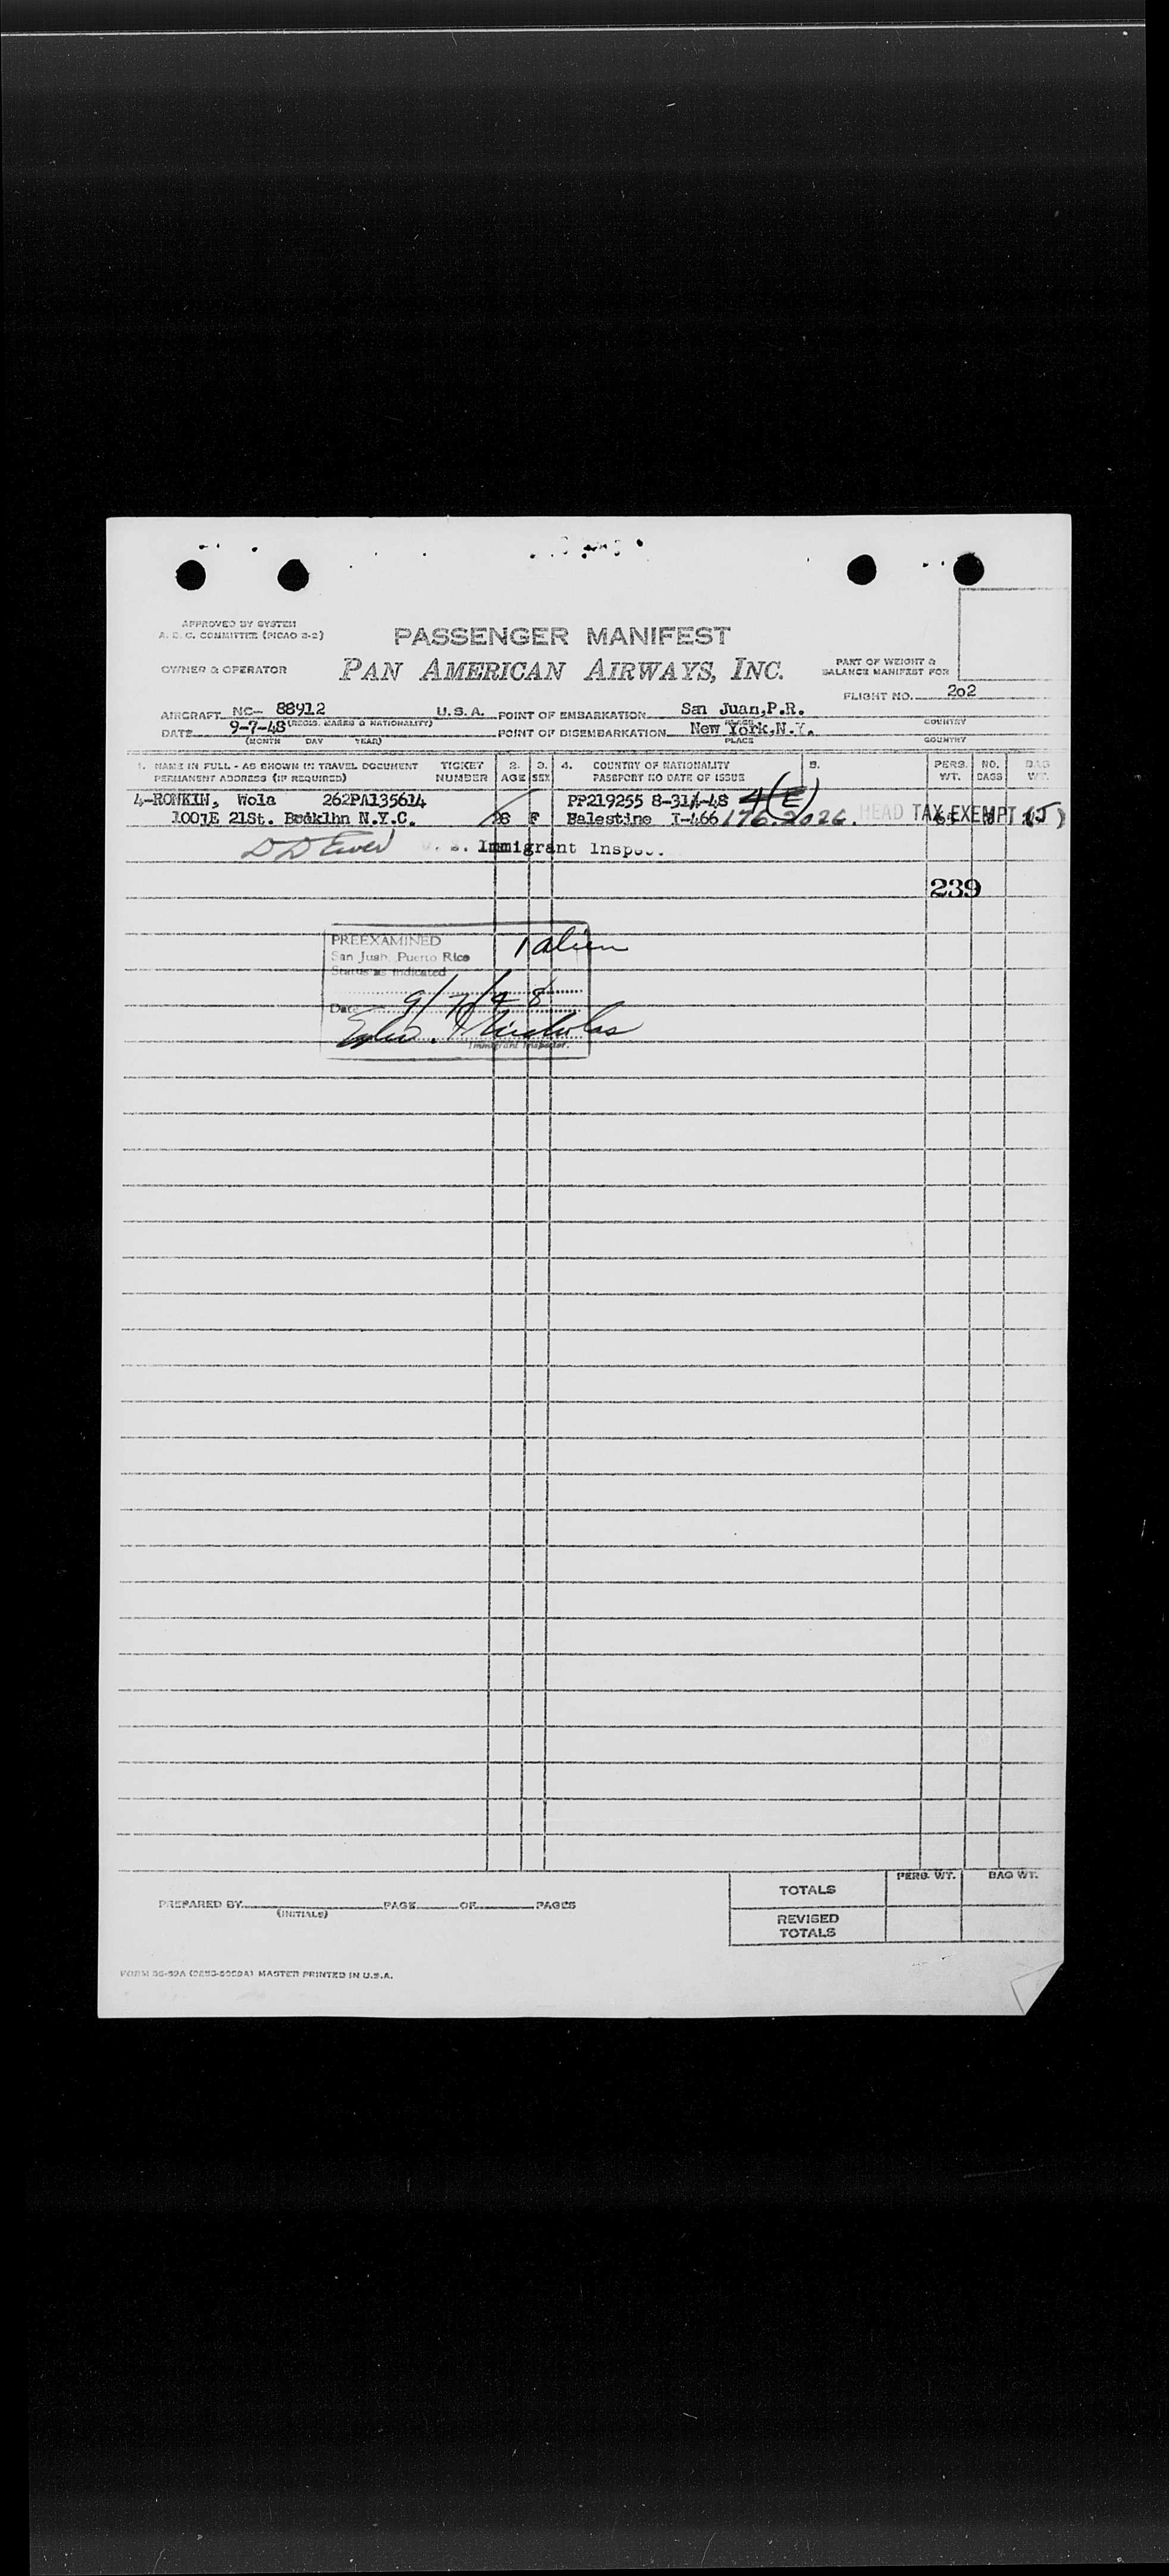 APPROVED BY SYSTEM
A. D. C. COMMITTEE (PICAO 2-2)
PASSENGER MANIFEST
OWNER & OPERATOR
PAN AMERICAN AIRWAYS, INC.
PART OF WEIGHT &
BALANCE MANIFEST FOR
FLIGHT NO. 202
AIRCRAFT NC- 88912 U.S.A. POINT OF EMBARKATION San Juan,P.R.
(REGIS. MARKS & NATIONALITY) PLACE COUNTRY
DATE 9-7-48 POINT OF DISEMBARKATION New York,N.Y.
(MONTH DAY YEAR) PLACE COUNTRY
1. NAME IN FULL - AS SHOWN IN TRAVEL DOCUMENT TICKET 2. 3. 4. COUNTRY OF NATIONALITY 5. PERS. NO. BAG
PERMANENT ADDRESS (IF REQUIRED) NUMBER AGE SEX PASSPORT NO DATE OF ISSUE WT. BAGS WT.
4-RONKIN, Wola 262PA135614 PP219255 8-31-48 4(E)
1007E 21St. N.Y.C. F Palestine I-466 HEAD TAX EXEMPT
Immigrant
239
PREEXAMINED 1 alien
San Juan, Puerto Rico
Status as indicated
Date 9/7/48
Nicholas
Immigrant Inspector.
PERS. WT. BAG WT.
TOTALS
PREPARED BY PAGE OF PAGES
(INITIALS)
REVISED
TOTALS
MASTER PRINTED IN U.S.A.